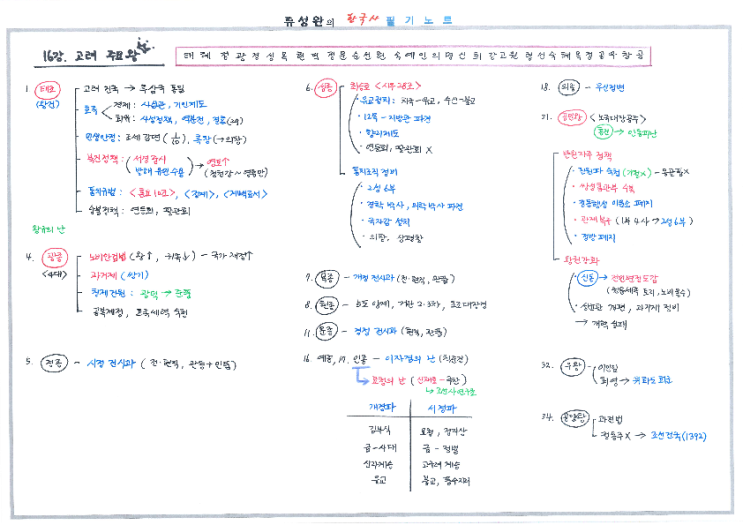 류성완의 한국사 필기노트
16강. 고려 주요왕
태혜정광경성목현덕정문순선헌숙예인의명신희강고원렬선숙혜목정공우창공
1. 태조 (왕건)
고려 건국 → 후삼국 통일
호족
견제 : 사심관, 기인제도
회유 : 사성정책, 역분전, 정혼(24명)
민생안정 : 조세 감면 (1/10), 흑창 (→의창)
북진정책 : 서경 중시
발해 유민 수용 → 영토↑
(청천강~영흥만)
통치규범 : <훈요10조>, <정계>, <계백료서>
숭불정책 : 연등회, 팔관회
왕규의 난
4. 광종 <4대>
노비안검법 (왕↑, 귀족↓) - 국가 재정↑
과거제 (쌍기)
칭제건원 : 광덕 → 준풍
공복제정,
5. 경종 - 시정 전시과 (전·현직, 관등+인품)
6. 성종
최승로 <시무28조>
유교정치 : 치국-유교, 수신-불교
12목 - 지방관 파견
향리제도
연등회, 팔관회 X
통치조직 정비
2성 6부
경학박사, 의학박사 파견
국자감 설치
의창, 상평창
7. 목종 - 개정 전시과 (전·현직, 관등)
8. 현종 - 5도 양계, 거란 2·3차, 초조대장경
11. 문종 - 경정 전시과 (현직, 관등)
16. 예종, 17. 인종 - 이자겸의 난 (척준경)
묘청의 난 (신채호-극찬)
조선사연구초
개경파 서경파
김부식 묘청, 정지상
금-사대 금-정벌
신라계승 고구려 계승
유교 불교, 풍수지리
18. 의종 - 무신정변
31. 공민왕 <노국대장공주>
홍건 → 안동피난
반원자주 정책
친원파 숙청 (기철X)
쌍성총관부 수복
정동행성 이문소 폐지
관제복구 (1부 4사 → 2성 6부)
정방 폐지
왕권강화
신돈 → 전민변정도감
(권문세족 토지, 노비몰수)
성균관 개편, 과거제 정비
→ 개혁 실패
32. 우왕
이인임
최영 → 위화도 회군
34. 공양왕
과전법
정몽주X → 조선건국(1392)